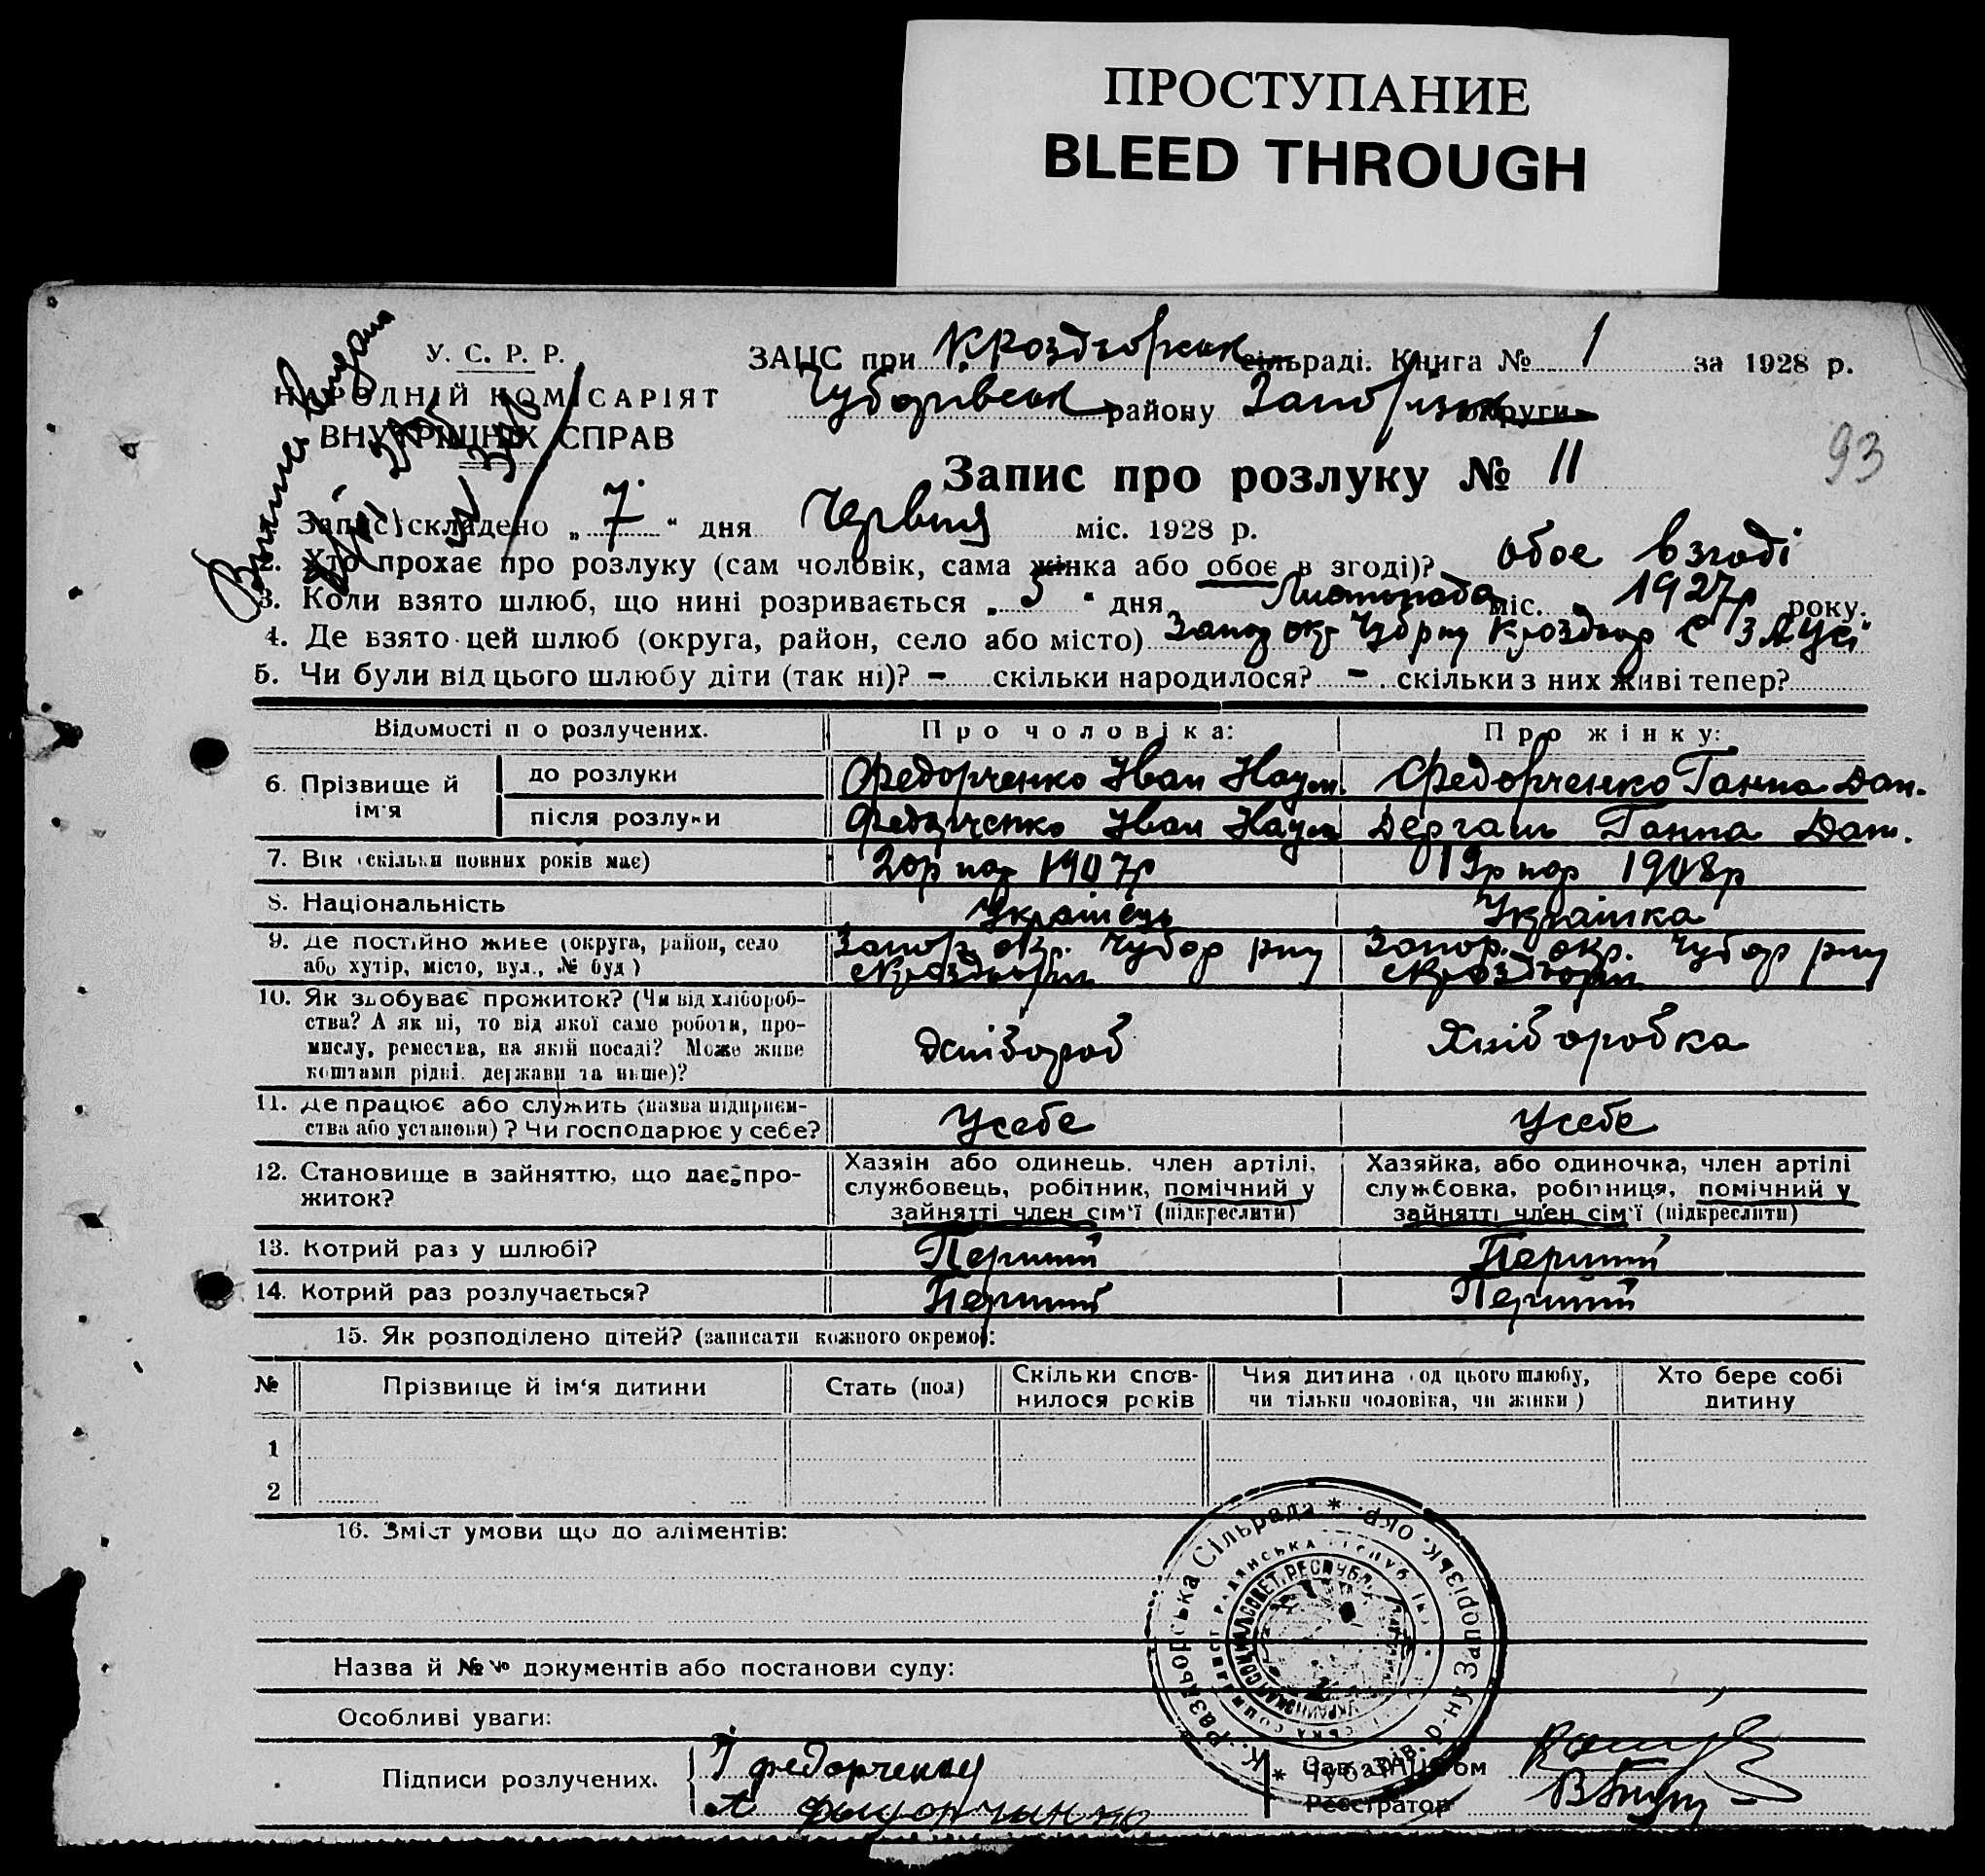 ПРОСТУПАНИЕ
BLEED THROUGH
У. С. Р. Р.
НАРОДНІЙ КОМІСАРІЯТ
ВНУТРІШНІХ СПРАВ
ЗАЦС при К. Роздгорськ сільраді. Книга № 1 за 1928 р.
Чубарівськ району округи
93
Запис про розлуку № 11
Запис складено „ 7 “ дня Червня міс. 1928 р.
2. Хто прохає про розлуку (сам чоловік, сама жінка або обоє в згоді)? обоє в згоді
3. Коли взято шлюб, що нині розривається „ 5 “ дня Листопада міс. 1927р року.
4. Де взято цей шлюб (округа, район, село або місто) Запор окр
5. Чи були від цього шлюбу діти (так ні)? – скільки народилося? – скільки з них живі тепер?
Відомості п о розлучених. Про чоловіка: Про жінку:
6. Прізвище й ім'я до розлуки Федорченко Іван Наум. Федорченко Ганна Дан.
після розлуки Федорченко Іван Наум Дергаль Ганна Дан.
7. Вік (скільки повних років має) 20р нар 1907р 19р нар 1908р
8. Національність Українець Українка
9. Де постійно живе (округа, район, село Запор. окр. Чубар рну Запор. окр. Чубар рну
або хутір, місто, вул., № буд) с Кроздгори с Кроздгори
10. Як здобуває прожиток? (Чи від хлібороб-
ства? А як ні, то від якої саме роботи, про-
мислу, ремества, на якій посаді? Може живе
коштами рідні, держави та инше)? Хлібороб Хліборобка
11. Де працює або служить (назва підприєм-
ства або установи)? Чи господарює у себе? Усебе Усебе
12. Становище в зайняттю, що дає про-
житок?
Хазяїн або одинець, член артілі,
службовець, робітник, помічний у
зайнятті член сім'ї (підкреслити)
Хазяйка, або одиночка, член артілі
службовка, робітниця, помічний у
зайнятті член сім'ї (підкреслити)
13. Котрий раз у шлюбі? Перший Перший
14. Котрий раз розлучається? Перший Перший
15. Як розподілено дітей? (записати кожного окремо):
№ Прізвище й ім'я дитини Стать (пол) Скільки спов-
нилося років Чия дитина (од цього шлюбу,
чи тільки чоловіка, чи жінки) Хто бере собі
дитину
1
2
16. Зміст умови що до аліментів:
К. Раздорська Сільрада * Чубарів. р-ну Запорізьк. окр. *
Назва й №№ документів або постанови суду:
Особливі уваги:
Підписи розлучених. І Федорченко
Зав. ЗАЦС'ом
Реєстратор